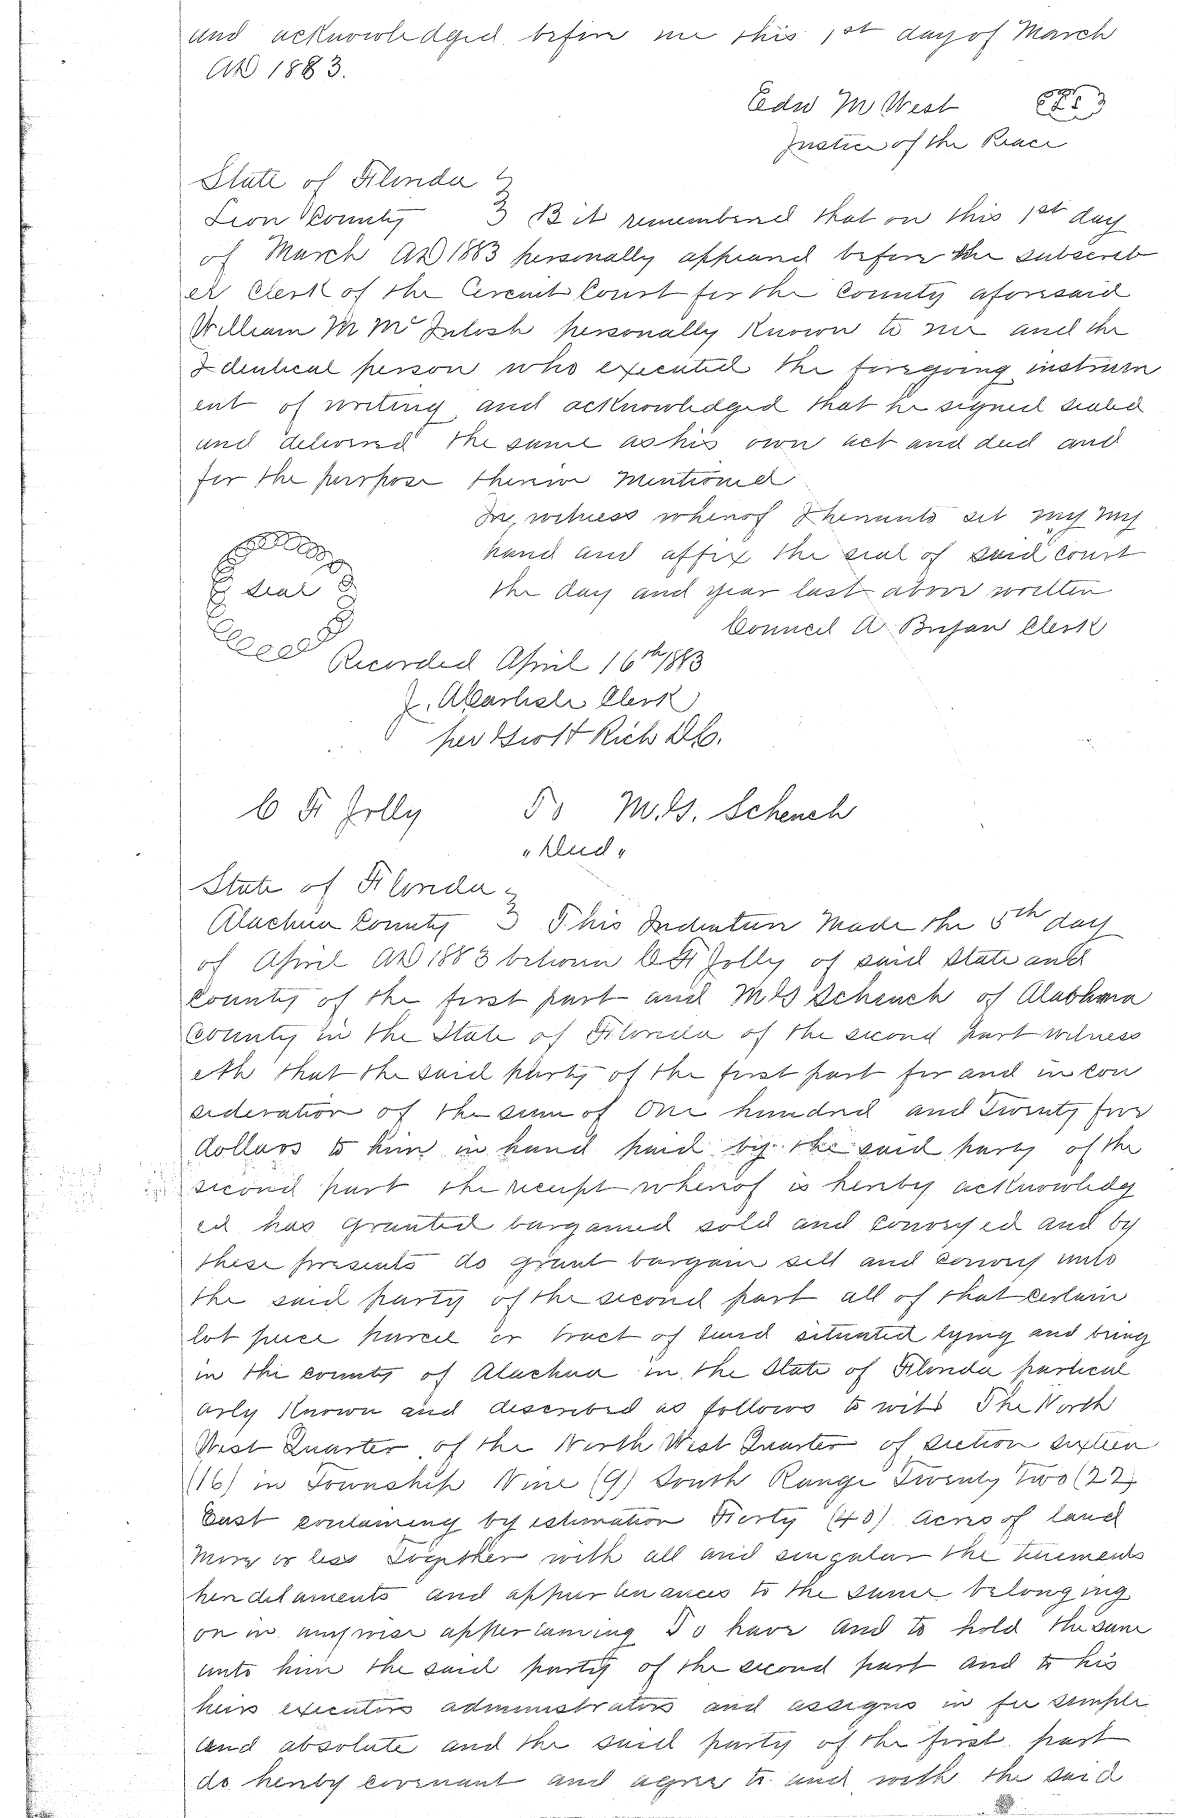 and acknowledged before me this 1st day of March
AD 1883.
Edw M West
Justice of the Peace
State of Florida
Leon County } B it remembered that on this 1st day
of March AD 1883 personally appeared before the subscrib
er Clerk of the Circuit Court for the County aforesaid
William M McIntosh personally Known to me and the
Identical person who executed the foregoing instrum
ent of writing and acknowledged that he signed sealed
and delivered the same as his own act and deed and
for the purpose therein Mentioned
In witness whereof I hereunto set my my
hand and affix the seal of said court
Seal
the day and year last above written
Council A Bryan Clerk
Recorded April 16th 1883
J. A Carlisle Clerk
per Scott Rich DC.
C F Jolly To M.S. Schench
"Deed"
State of Florida
Alachua County } This Indenture Made the 5th day
of April AD 1883 between C F Jolly of said State and
County of the first part and M S Schench of Alabhma
County in the State of Florida of the second part witness
eth that the said party of the first part for and in con
sideration of the sum of One hundred and Twenty five
dollars to him in hand paid by the said party of the
second part the receipt whereof is hereby acknowledg
ed has granted bargained sold and conveyed and by
these presents do grant bargain sell and convey unto
the said party of the second part all of that certain
lot piece parcel or tract of land situated lying and being
in the county of Alachua in the State of Florida particul
arly Known and described as follows to wit The North
West Quarter of the North West Quarter of section sixteen
(16) in Township Nine (9) South Range Twenty Two (22)
East containing by estimation Forty (40) Acres of land
More or less Together with all and singular the tenements
heredetaments and appurtenances to the same belonging
or in anywise appertaining To have and to hold the same
unto him the said party of the second part and to his
heirs executors administrators and assigns in fee simple
and absolute and the said party of the first part
do hereby covenant and agree to and with the said